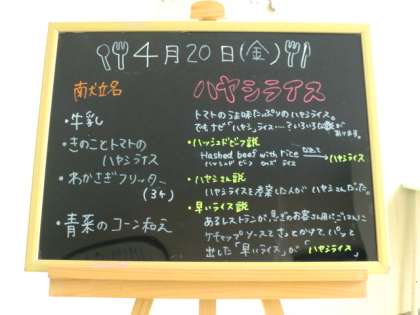 4月20日(金)
献立名
・牛乳
・きのことトマトの
ハヤシライス
・わかさぎフリッター
(3本)
・青菜のコーン和え
ハヤシライス
トマトのうま味たっぷりのハヤシライス。
でもナゼ「ハヤシ」ライス…?いろいろな説が
あります。
・ハッシュドビーフ説
Hashed beef with rice なまって
ハッシュド ビーフ ウィズ ライス
ハヤシライス
・ハヤシさん説
ハヤシライスを考案した人がハヤシさんだった。
・早いライス説
あるレストランが、急ぎのお客さん用にごはんに
ケチャップソースをさっとかけて、パッと
出した「早いライス」が「ハヤシライス」